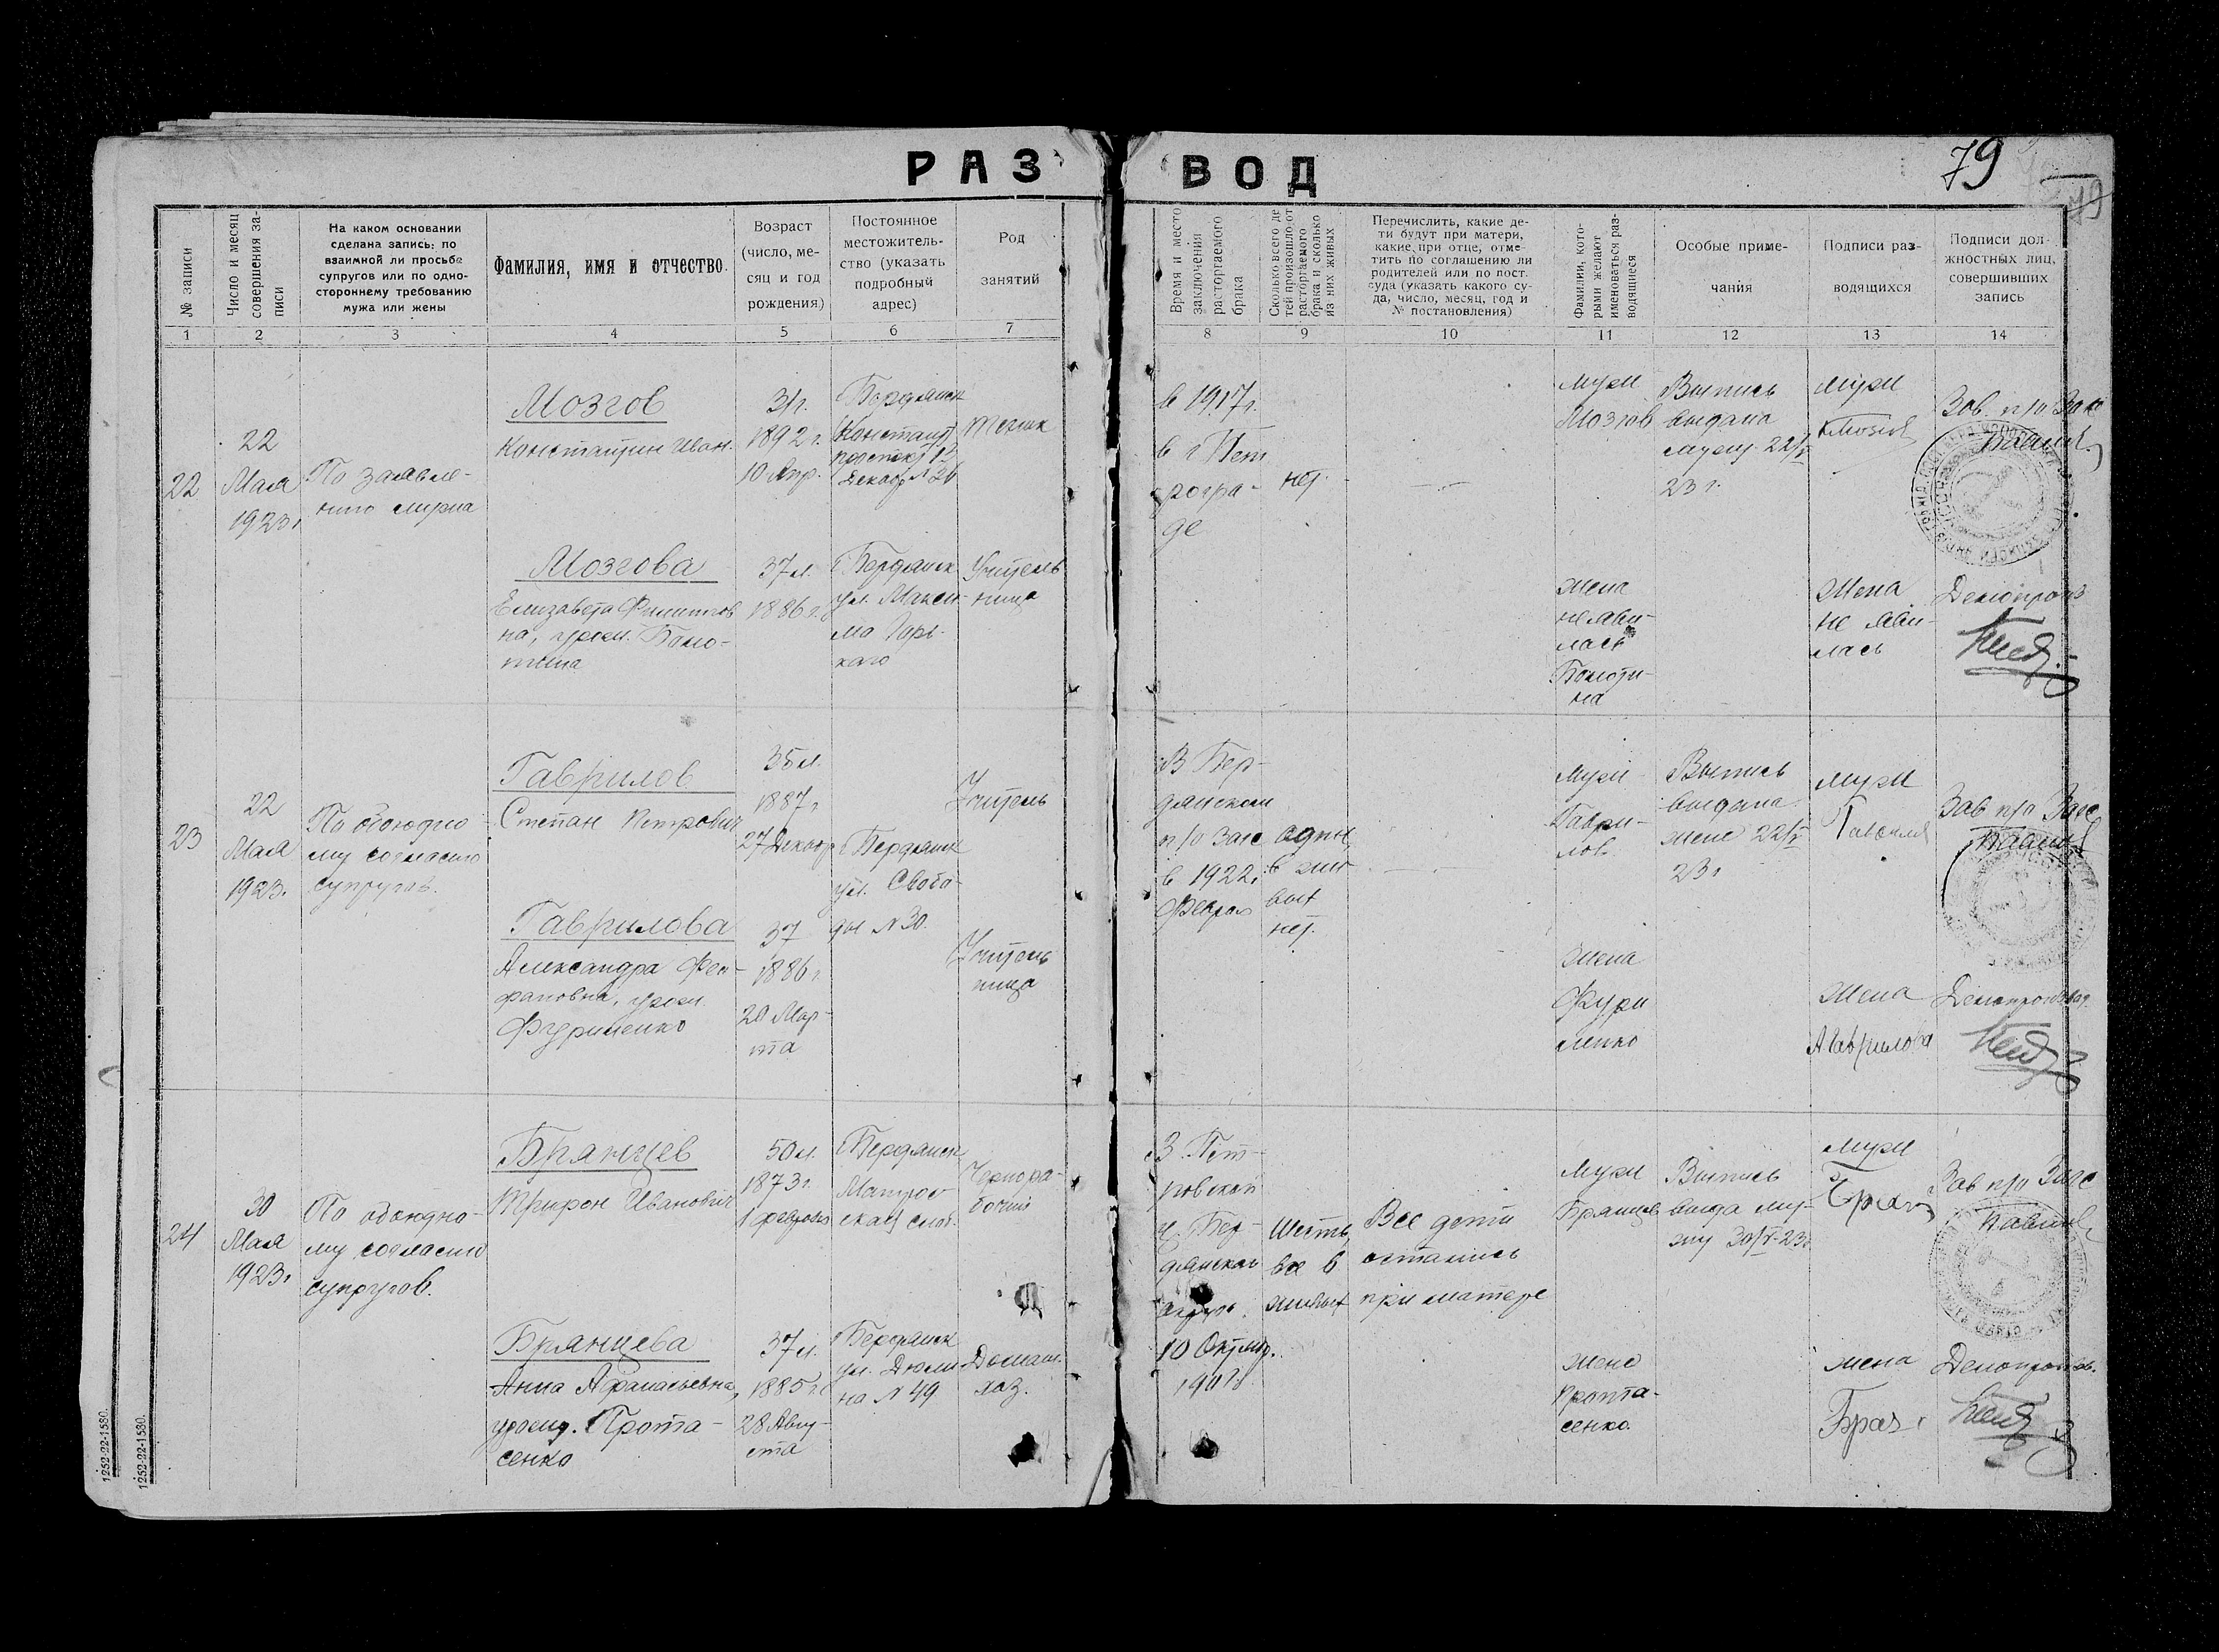 РАЗВОД
79
79
№ записи
Число и месяц
совершения за-
писи
На каком основании
сделана запись: по
взаимной ли просьбе
супругов или по одно-
стороннему требованию
мужа или жены
Фамилия, имя и отчество.
Возраст
(число, ме-
сяц и год
рождения)
Постоянное
местожитель-
ство (указать
подробный
адрес)
Род
занятий
Время и место
заключения
расторгаемого
брака
Сколько всего де
тей произошло от
расторгаемого
брака и сколько
из них живых
Перечислить, какие де-
ти будут при матери,
какие при отце, отме-
тить по соглашению ли
родителей или по пост.
суда (указать какого су-
да, число, месяц, год и
№ постановления)
Фамилии, кото-
рыми желают
именоваться раз-
водящиеся
Особые приме-
чания
Подписи раз-
водящихся
Подписи дол-
жностных лиц,
совершивших
запись
1 2 3 4 5 6 7 8 9 10 11 12 13 14
22
22
Мая
1923г
По заявле-
нию мужа
Мозгов
Константин Иван.
31г.
1892г.
10 Апр.
Бердянск
Констант
проспект
Декабр № 26
в 1917г.
в г Пет
рогра-
де
нет
муж
Мозгов
Выпись
выдана
мужу 22/V
23 г.
муж
Зав. п/о Загс
Мозгова
Елизавета Филиппов
на, урож. Боло-
тина
37л.
1886г.
Бердянск
ул. Макси-
ма Горь-
каго
Учитель
ница
жена
не яви-
лась
Болоти-
на
Жена
не яви-
лась
Делопроиз
23
22
Мая
1923.
По обоюдно-
му согласию
супругов.
Гаврилов
Степан Петрович
35л.
1887г
27 Декабр
Бердянск
ул. Свобо-
ды № 30.
Учитель
В Бер-
дянском
п/о Загс
в 1922г
Феврал
один,
в жи
вых
нет.
муж
Гаври-
лов.
Выпись
выдана
жене 22/V
23г
муж
Зав п/о Загс
Гаврилова
Александра Фео-
фановна, урож.
Фуриленко
37
1886г
20 Мар-
та
Учитель
ница
Жена
Фури
ленко
Жена
АГаврилова
Делопроизвод.
24
30
Мая
1923г
По обоюдно-
му согласию
супругов.
Брянцев
Трифон Иванович
50л.
1873г.
1 февраля
Бердянск
Матрос
ская слоб.
Чернора-
бочий
В Пет-
ровской
ц. Бер-
дянскаго
10 Октяб.
1901г
Шесть,
все в
живых
Все дети
остались
при матере
Муж
Брянцев
Выпись
выда му-
жу 30/V-23г
муж
Зав п/о Загс
Брянцева
Анна Афанасьевна,
урожд. Прота-
сенко
37л.
1885г
28 Авгу-
ста
Бердянск
ул. Дюми-
на № 49
Домаш.
хоз.
жене
Прота-
сенко.
жена
Делопроизв.
1252-22-1580.
1252-22-1580.